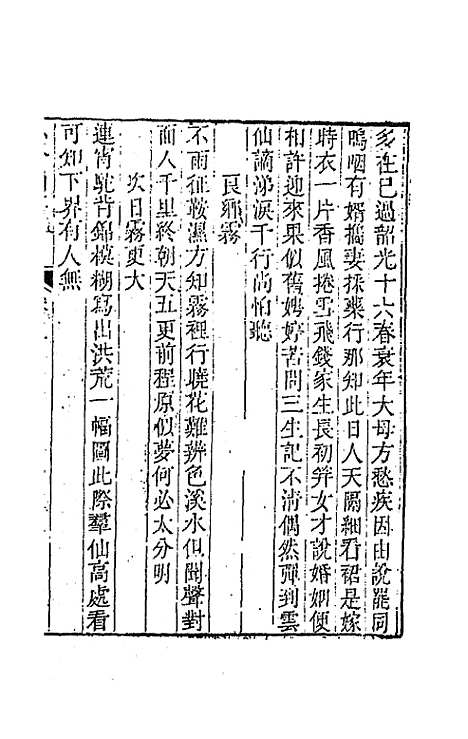 多在已過韶光十六春衰年大母方愁疾因由說罷同
嗚咽有婿攜妻採藥行那知此日人天隔細看裙是嫁
時衣一片香風捲雪飛錢家生長初笄女才說婚姻便
相許迎來果似舊娉婷苦問三生記不清偶然彈到雲
仙謫涕淚千行尚怕聽
良鄉霧
不雨征鞍濕方知霧裡行曉花難辨色溪水但聞聲對
面人千里終朝天五更前程原似夢何必太分明
次日霧更大
連宵駝背錦模糊寫出洪荒一幅圖此際羣仙高處看
可知下界有人無